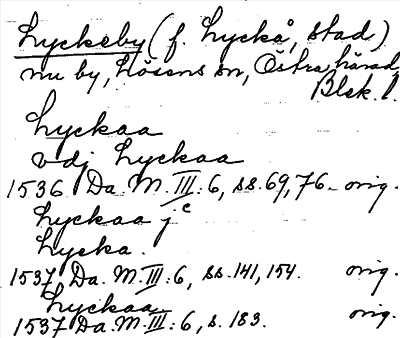 Lyckeby (f. Lyckå, stad)
nu by, Lösens sn, Östra härad,
Blek. l.
Lyckaa
vdj Lyckaa
1536 Da. M. III: 6, ss. 69, 76 - orig.
Lyckaa jc
Lycka.
1537 Da. M. III: 6, ss. 141, 154. orig.
Lyckaa
1537 Da. M. III: 6, s. 183. orig.